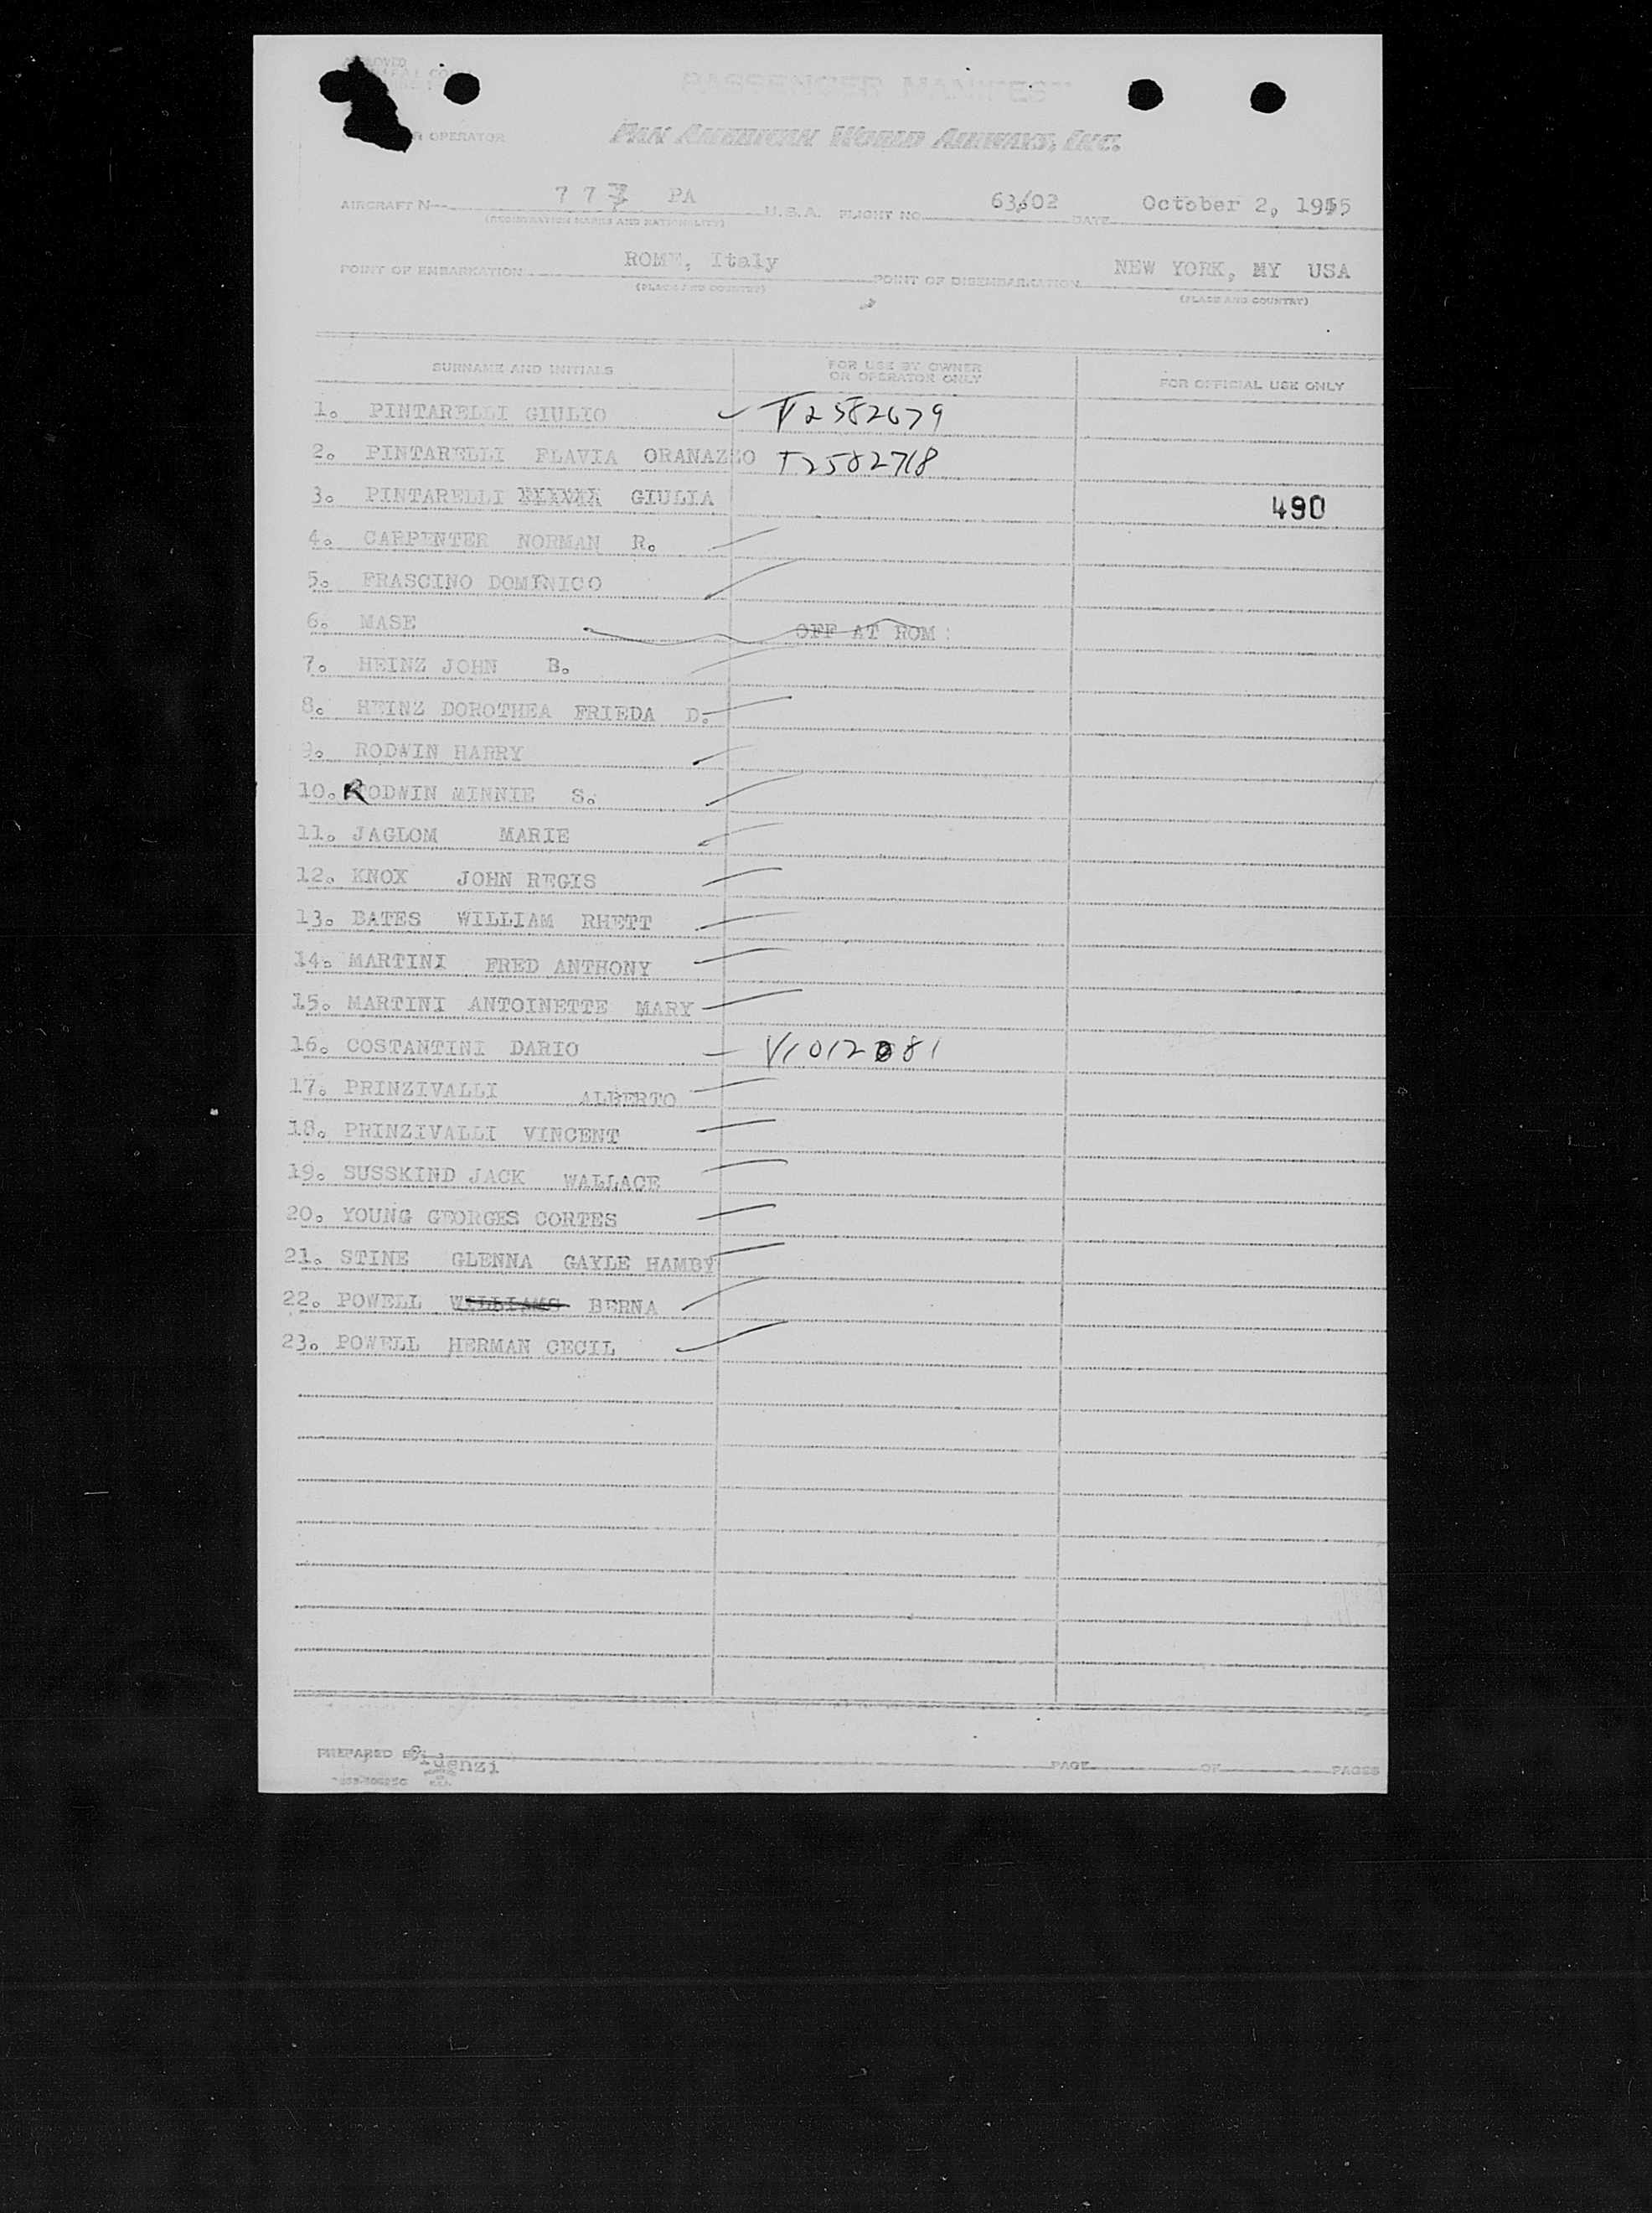 APPROVED
OPERATOR
PASSENGER MANIFEST
PAN AMERICAN WORLD AIRWAYS, INC.
AIRCRAFT N 77 PA U.S.A. FLIGHT NO. 63/02 DATE October 2, 1955
(REGISTRATION MARKS AND NATIONALITY)
POINT OF EMBARKATION ROME, Italy POINT OF DISEMBARKATION NEW YORK, NY USA
(PLACE AND COUNTRY) (PLACE AND COUNTRY)
SURNAME AND INITIALS FOR USE BY OWNER OR OPERATOR ONLY FOR OFFICIAL USE ONLY
1. PINTARELLI GIULIO V2582679
2. PINTARELLI FLAVIA ORANAZZO T2582718
3. PINTARELLI GIULIA 490
4. CARPENTER NORMAN R.
5. FRASCINO DOMINICO
6. MASE OFF AT ROM
7. HEINZ JOHN B.
8. HEINZ DOROTHEA FRIEDA D.
9. RODWIN HARRY
10. RODWIN MINNIE S.
11. JAGLOM MARIE
12. KNOX JOHN REGIS
13. BATES WILLIAM RHETT
14. MARTINI FRED ANTHONY
15. MARTINI ANTOINETTE MARY
16. COSTANTINI DARIO V1012081
17. PRINZIVALLI ALBERTO
18. PRINZIVALLI VINCENT
19. SUSSKIND JACK WALLACE
20. YOUNG GEORGES CORTES
21. STINE GLENNA GAYLE HAMBY
22. POWELL WILLIAMS BERNA
23. POWELL HERMAN CECIL
PREPARED BY PAGE OF PAGES